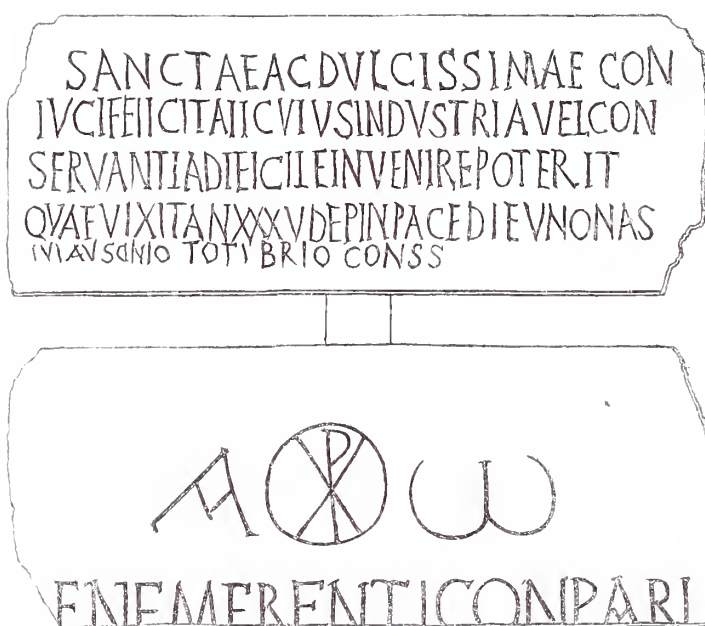 SANCTAE AC DVLCISSIMAE CON
IVCI FEIICITAII CVIVS INDVSTRIA VEL CON
SERVANTIA DIEICIIE INVENIRE POTERIT
QVAE VIXIT AN XXXV DEP IN PACE DIE V NONAS
IVIAVSONIO TOTYBRIO CONSS
A ☧ ω
ENEMERENTI CONPARI